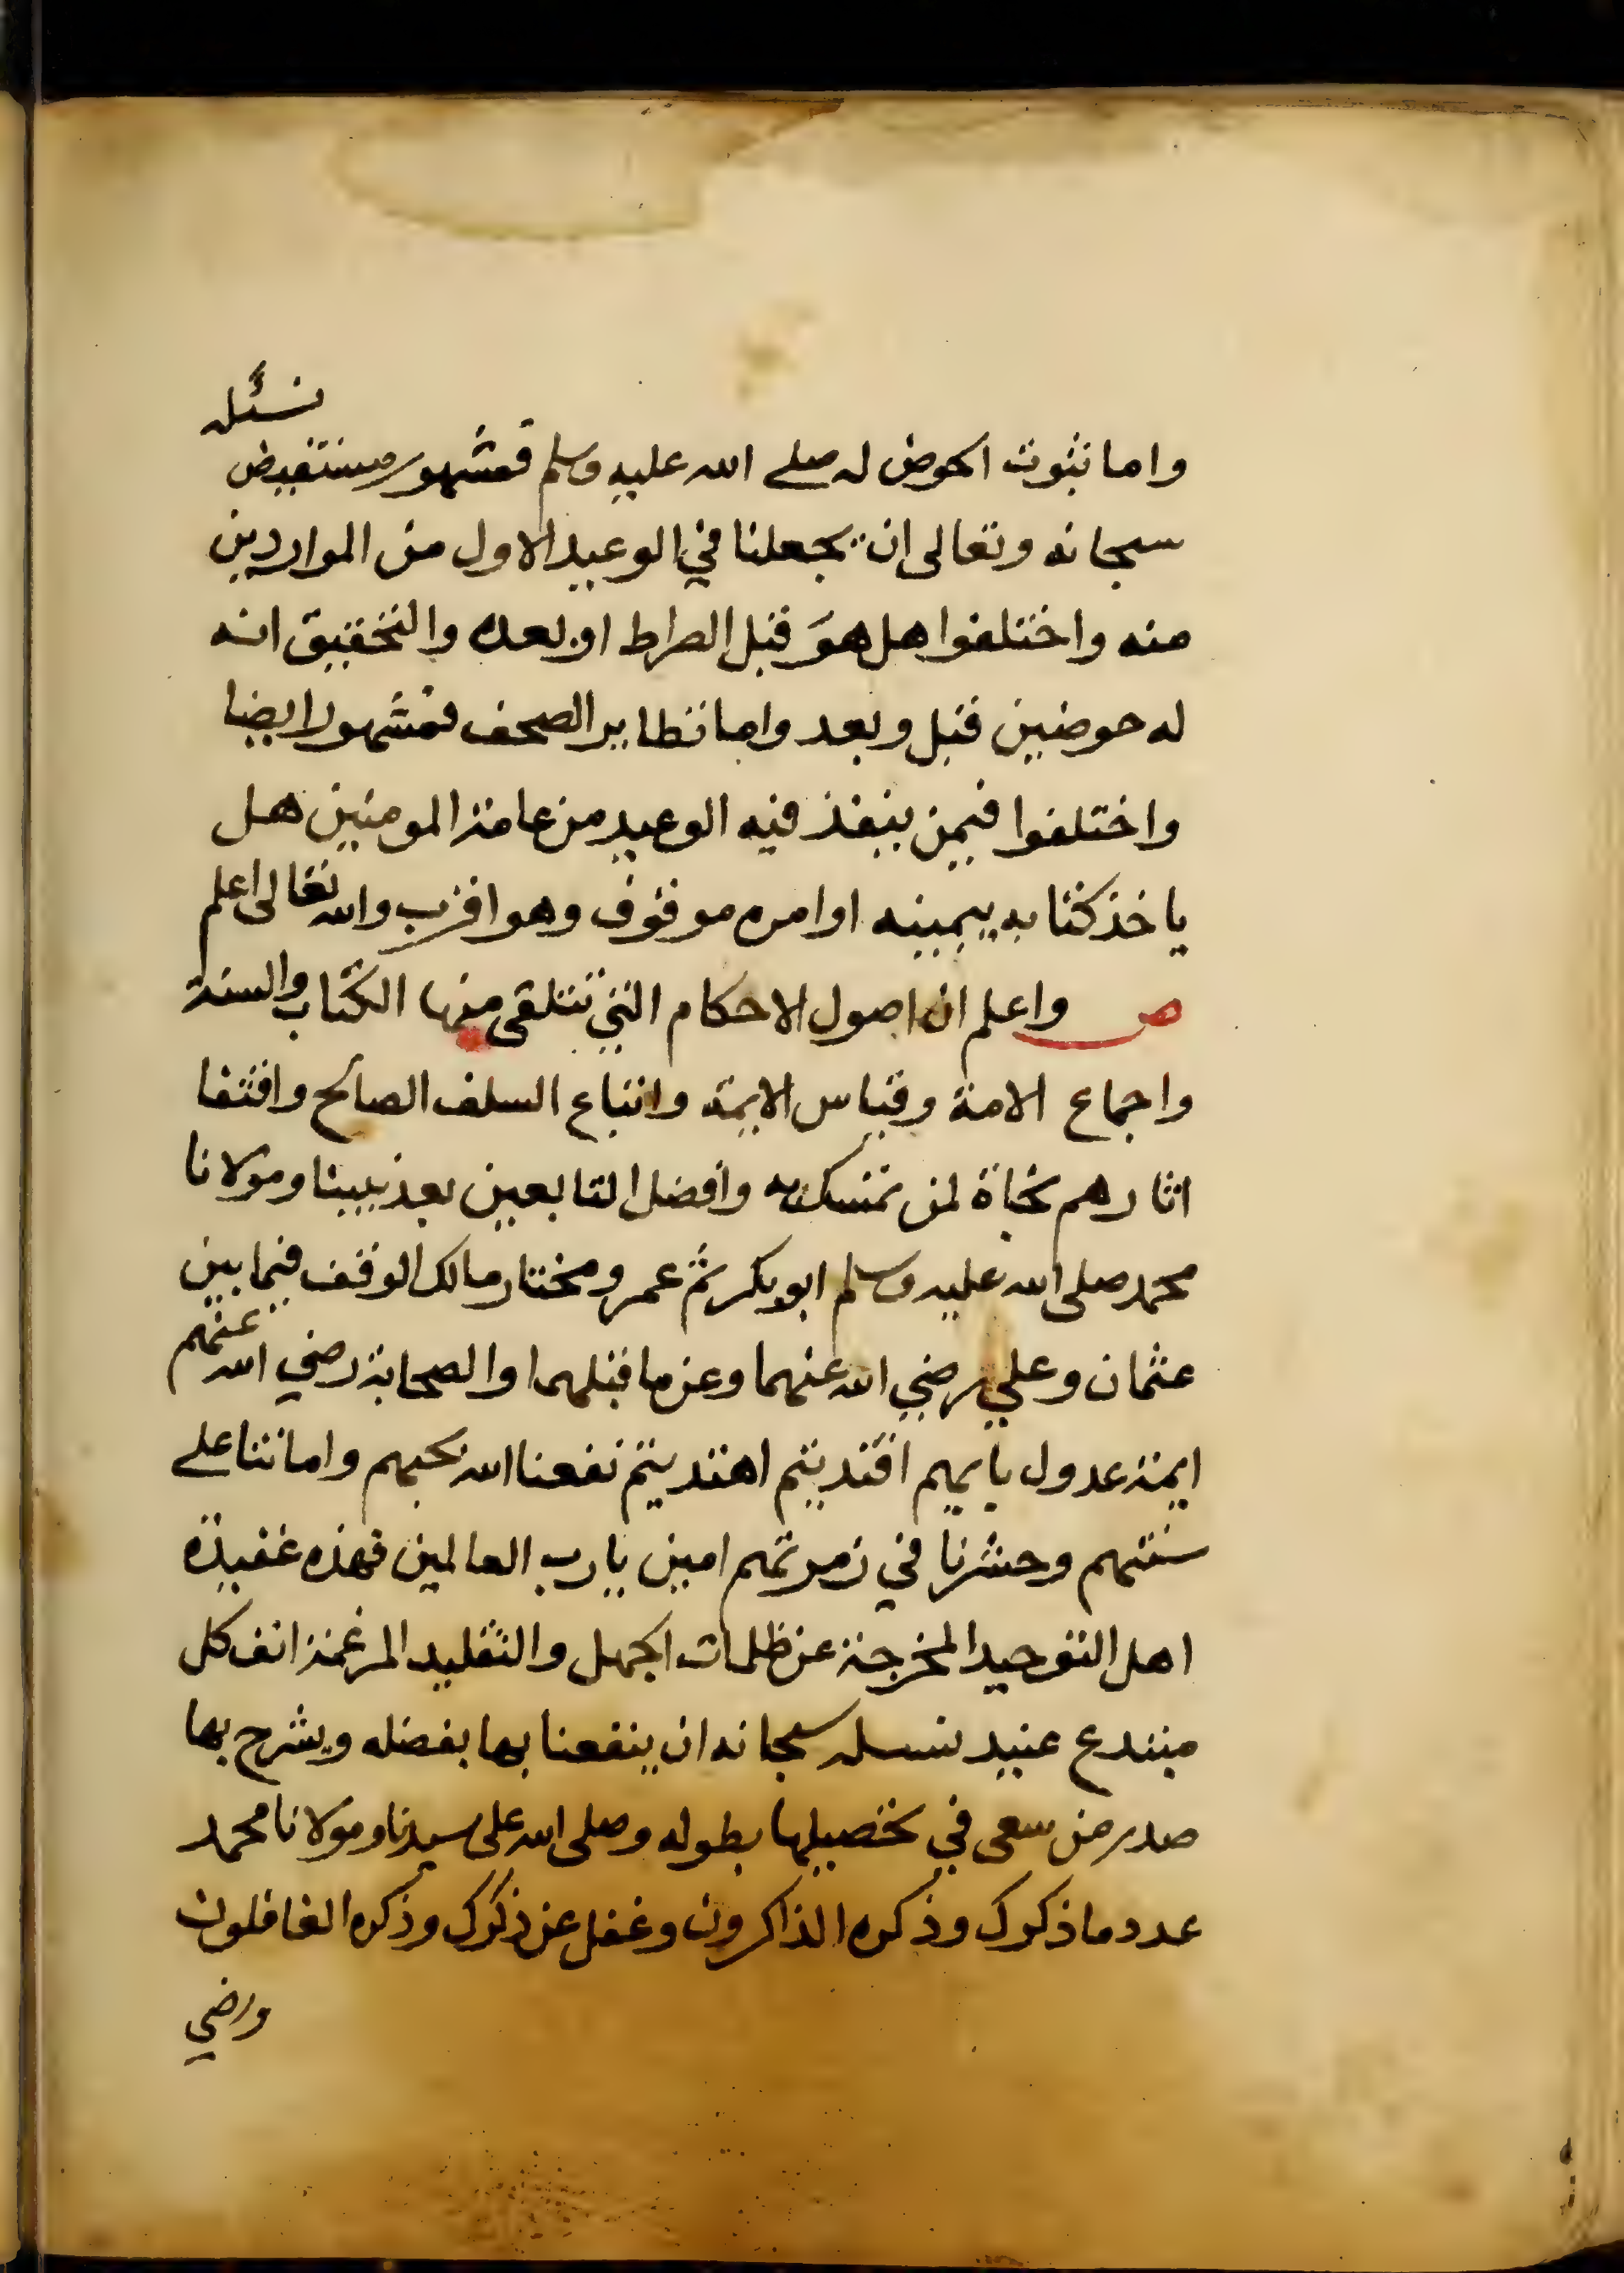 واما ثبوت الحوض له صلى الله عليه وسلم فمشهور مستفيض نسئله
سبحانه وتعالى ان يجعلنا في الوعيد الاول من الواردين
منه واختلفوا هل هو قبل الصراط او بعده والتحقيق انه
له حوضين قبل وبعد واما تطاير الصحف فمشهور ايضا
واختلفوا فيمن ينفذ فيه الوعيد من عامة المومنين هل
ياخذ كتابه بيمينه او امره موقوف وهو اقرب والله تعالى اعلم
ص واعلم ان اصول الاحكام التي تتلقى منها الكتاب والسنة
واجماع الامة وقياس الايمة واتباع السلف الصالح واقتفا
اثارهم نجاة لمن تمسك به وافضل التابعين بعد نبينا ومولانا
محمد صلى الله عليه وسلم ابو بكر ثم عمر ومختار مالك الوقف فيما بين
عثمان وعلي رضي الله عنهما وعن ما قبلهما والصحابة رضي الله عنهم
ايمة عدول بايهم اقتديتم اهتديتم نفعنا الله بحبهم واماتنا على
سنتهم وحشرنا في زمرتهم امين يا رب العالمين فهذه عقيدة
اهل التوحيد المخرجة عن ظلمات الجهل والتقليد المرغمة انف كل
مبتدع عنيد نسله سبحانه ان ينفعنا بها بفضله ويشرح بها
صدر من سعى في تحصيلها بطوله وصلى الله على سيدنا ومولانا محمد
عدد ما ذكرك وذكره الذاكرون وغفل عن ذكرك وذكره الغافلون
ورضي